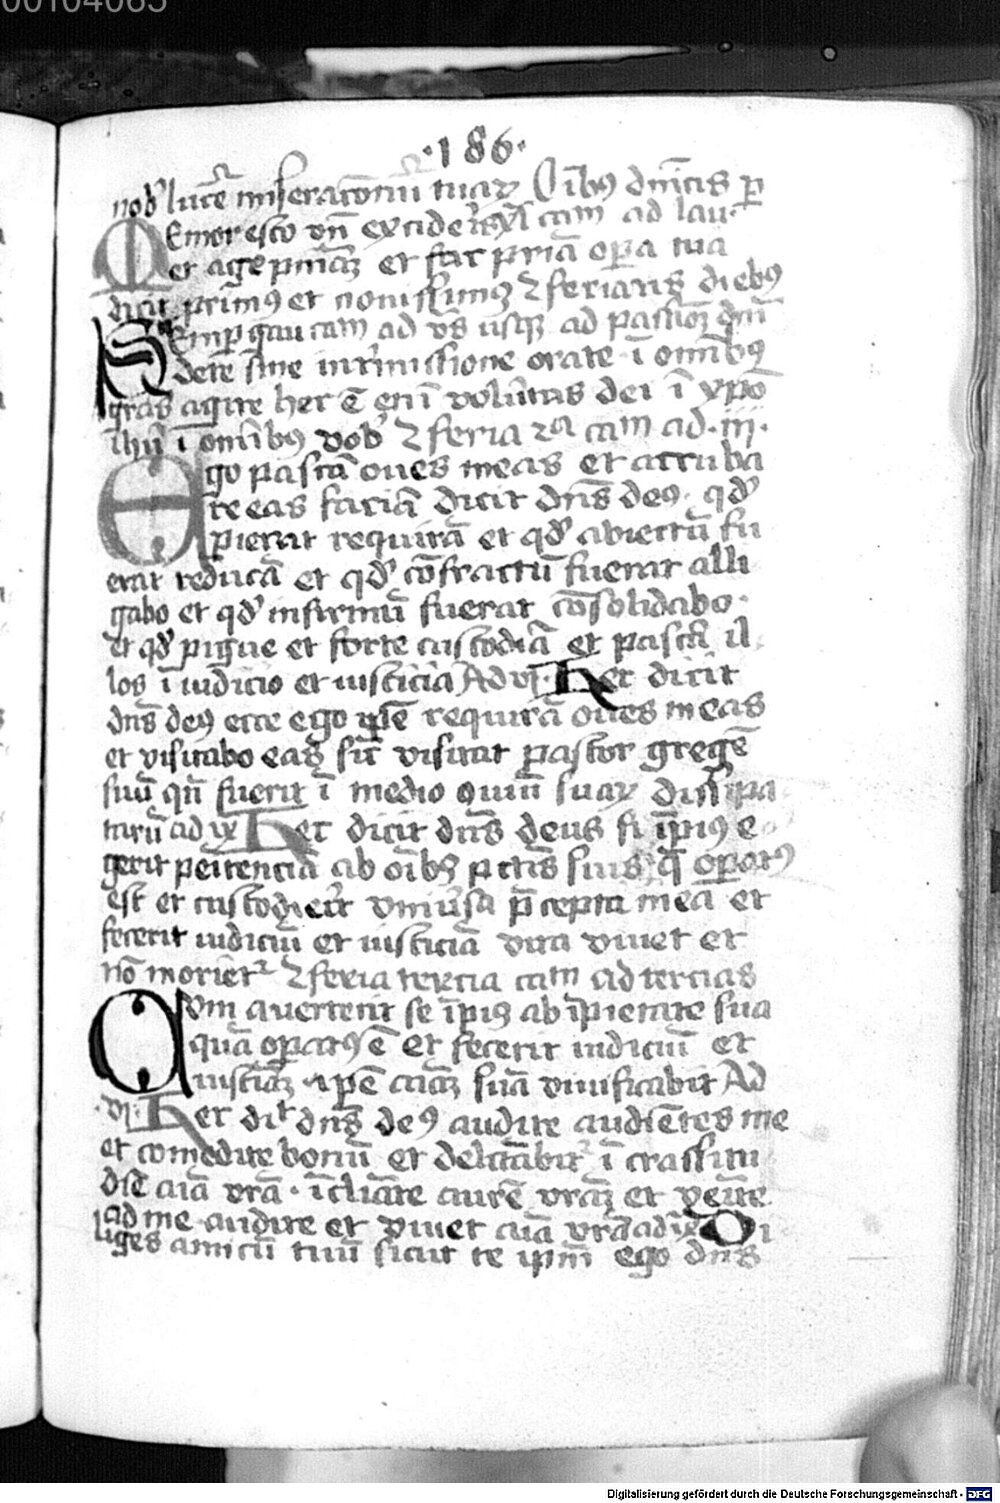 00104065
·186·
nob' lucē miseraconū tuaꝝ Oībꝯ dnīcis ꝑ
Memor esto vn̄ excideris xl cam ad lau·
et age pnīaꝫ et fac pria oꝑa tua
dicit primꝯ et nouissimꝯ ⁊ feriatis diebꝯ
Semꝑ gau cam ad vs̄ usqꝫ ad passioꝫ dnī
dete sine intmissione orate ī omībꝯ
grās agite hec ē enī volūtas dei ī xpō
ihū ī omībꝯ vob' ⁊ feria 2a cam ad ·iij·
Ego pascā oues meas et accuba
re eas faciā dicit dn̄s deꝯ· qd'
pierat requirā et qd' abiectū fu
erat reducā et qd' cōfractū fuerat alli
gabo et qd' infirmū fuerat cōsolidabo·
et qd' pigue et forte custodiā et pascā il
los ī iudicio et iusticia Ad vj· Hec dicit
dn̄s deꝯ ecce ego ip̄e requirā oues meas
et visitabo eas sic̄ visitat pastor gregē
suū qn̄ fuerit ī medio ouiū suaꝝ dissipa
tarū ad ix Hec dicit dn̄s deus si īpiꝯ e
gerit peitenciā ab oībꝯ pcctīs suis q̄ oꝑatꝯ
est et custodierit vniusa p̄cepta mea et
fecerit iudiciū et iusticiā vita viuet et
nō moriet² ⁊ feria tercia cam ad tercias
Cvm auerterit se īpiꝯ ab īpietate sua
quā oꝑatꝯ ē et fecerit iudiciū et
iusticiaꝫ ip̄e aiaꝫ suā viuificabit Ad
·vj· Hec dic̄ dn̄s deꝯ audite audiētes me
et comedite bonū et delctabit² ī crassitu
dīe aiā vrā· īcliāte aurē vraꝫ et veīte
ad me audite et viuet aiā vrā ad ix Di
liges amicū tuū sicut te ipm̄ ego dn̄s
Digitalisierung gefördert durch die Deutsche Forschungsgemeinschaft - DFG